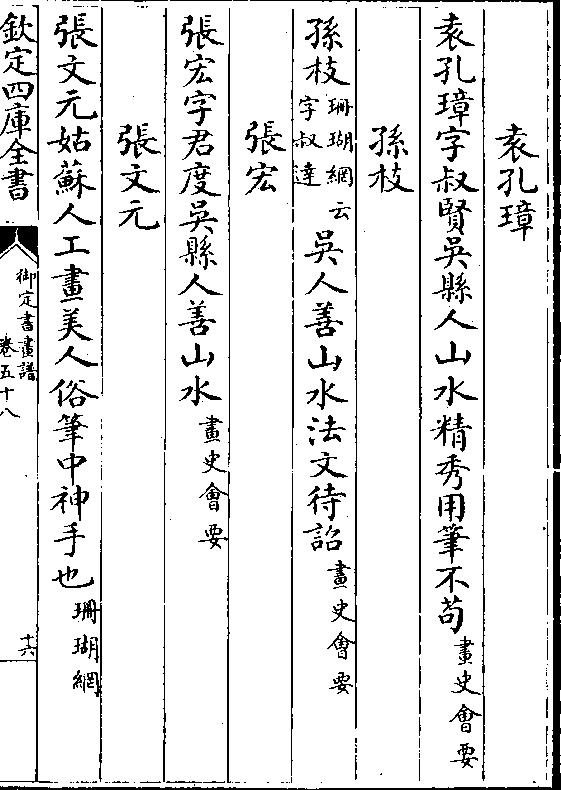 袁孔璋
袁孔璋字叔賢吳縣人山水精秀用筆不苟畫史會要
孫枝
孫枝珊瑚網云字叔達吳人善山水法文待詔畫史會要
張宏
張宏字君度吳縣人善山水畫史會要
張文元
張文元姑蘇人工畫美人俗筆中神手也珊瑚網
欽定四庫全書
御定書畫譜
卷五十八
十六